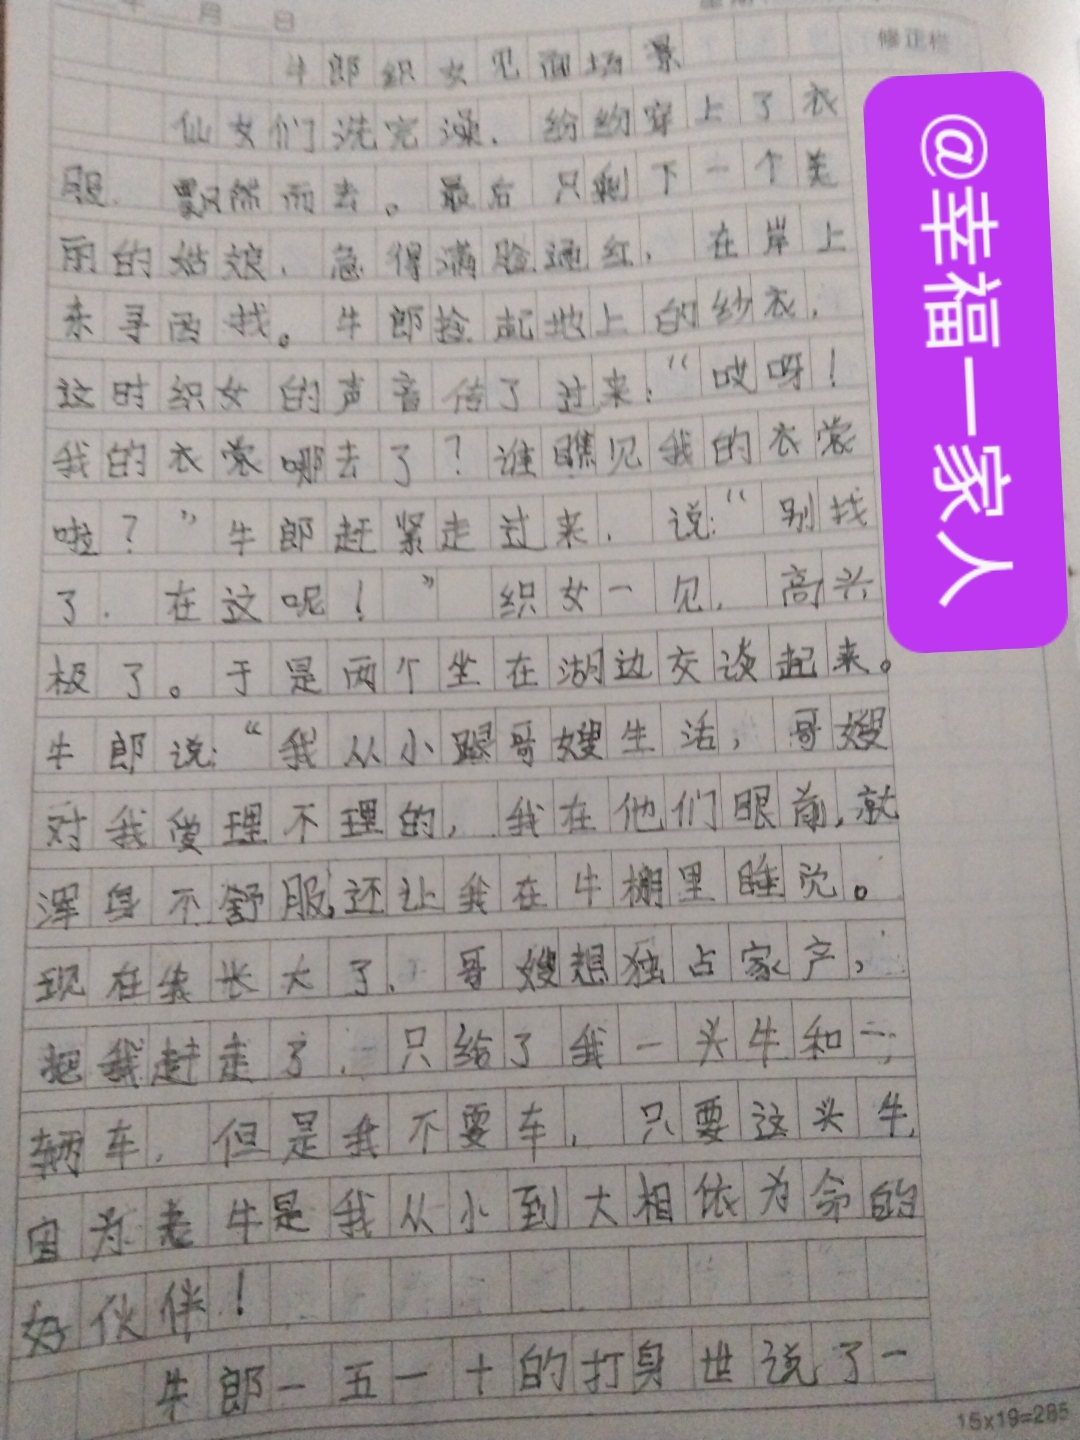 年 月 日
修正栏
牛郎织女见面场景
仙女们洗完澡，纷纷穿上了衣
服，飘然而去。最后只剩下一个美
丽的姑娘，急得满脸通红，在岸上
东寻西找。牛郎捡起地上的纱衣，
这时织女的声音传了过来：“哎呀！
我的衣裳哪去了？谁瞧见我的衣裳
啦？”牛郎赶紧走过来，说：“别找
了，在这呢！”织女一见，高兴
极了。于是两个坐在湖边交谈起来。
牛郎说：“我从小跟哥嫂生活，哥嫂
对我爱理不理的，我在他们眼前，就
浑身不舒服，还让我在牛棚里睡觉。
现在我长大了，哥嫂想独占家产，
把我赶走了，只给了我一头牛和一
辆车，但是我不要车，只要这头牛，
因为老牛是我从小到大相依为命的
好伙伴！
牛郎一五一十的打身世说了一
15x19=285
@幸福一家人